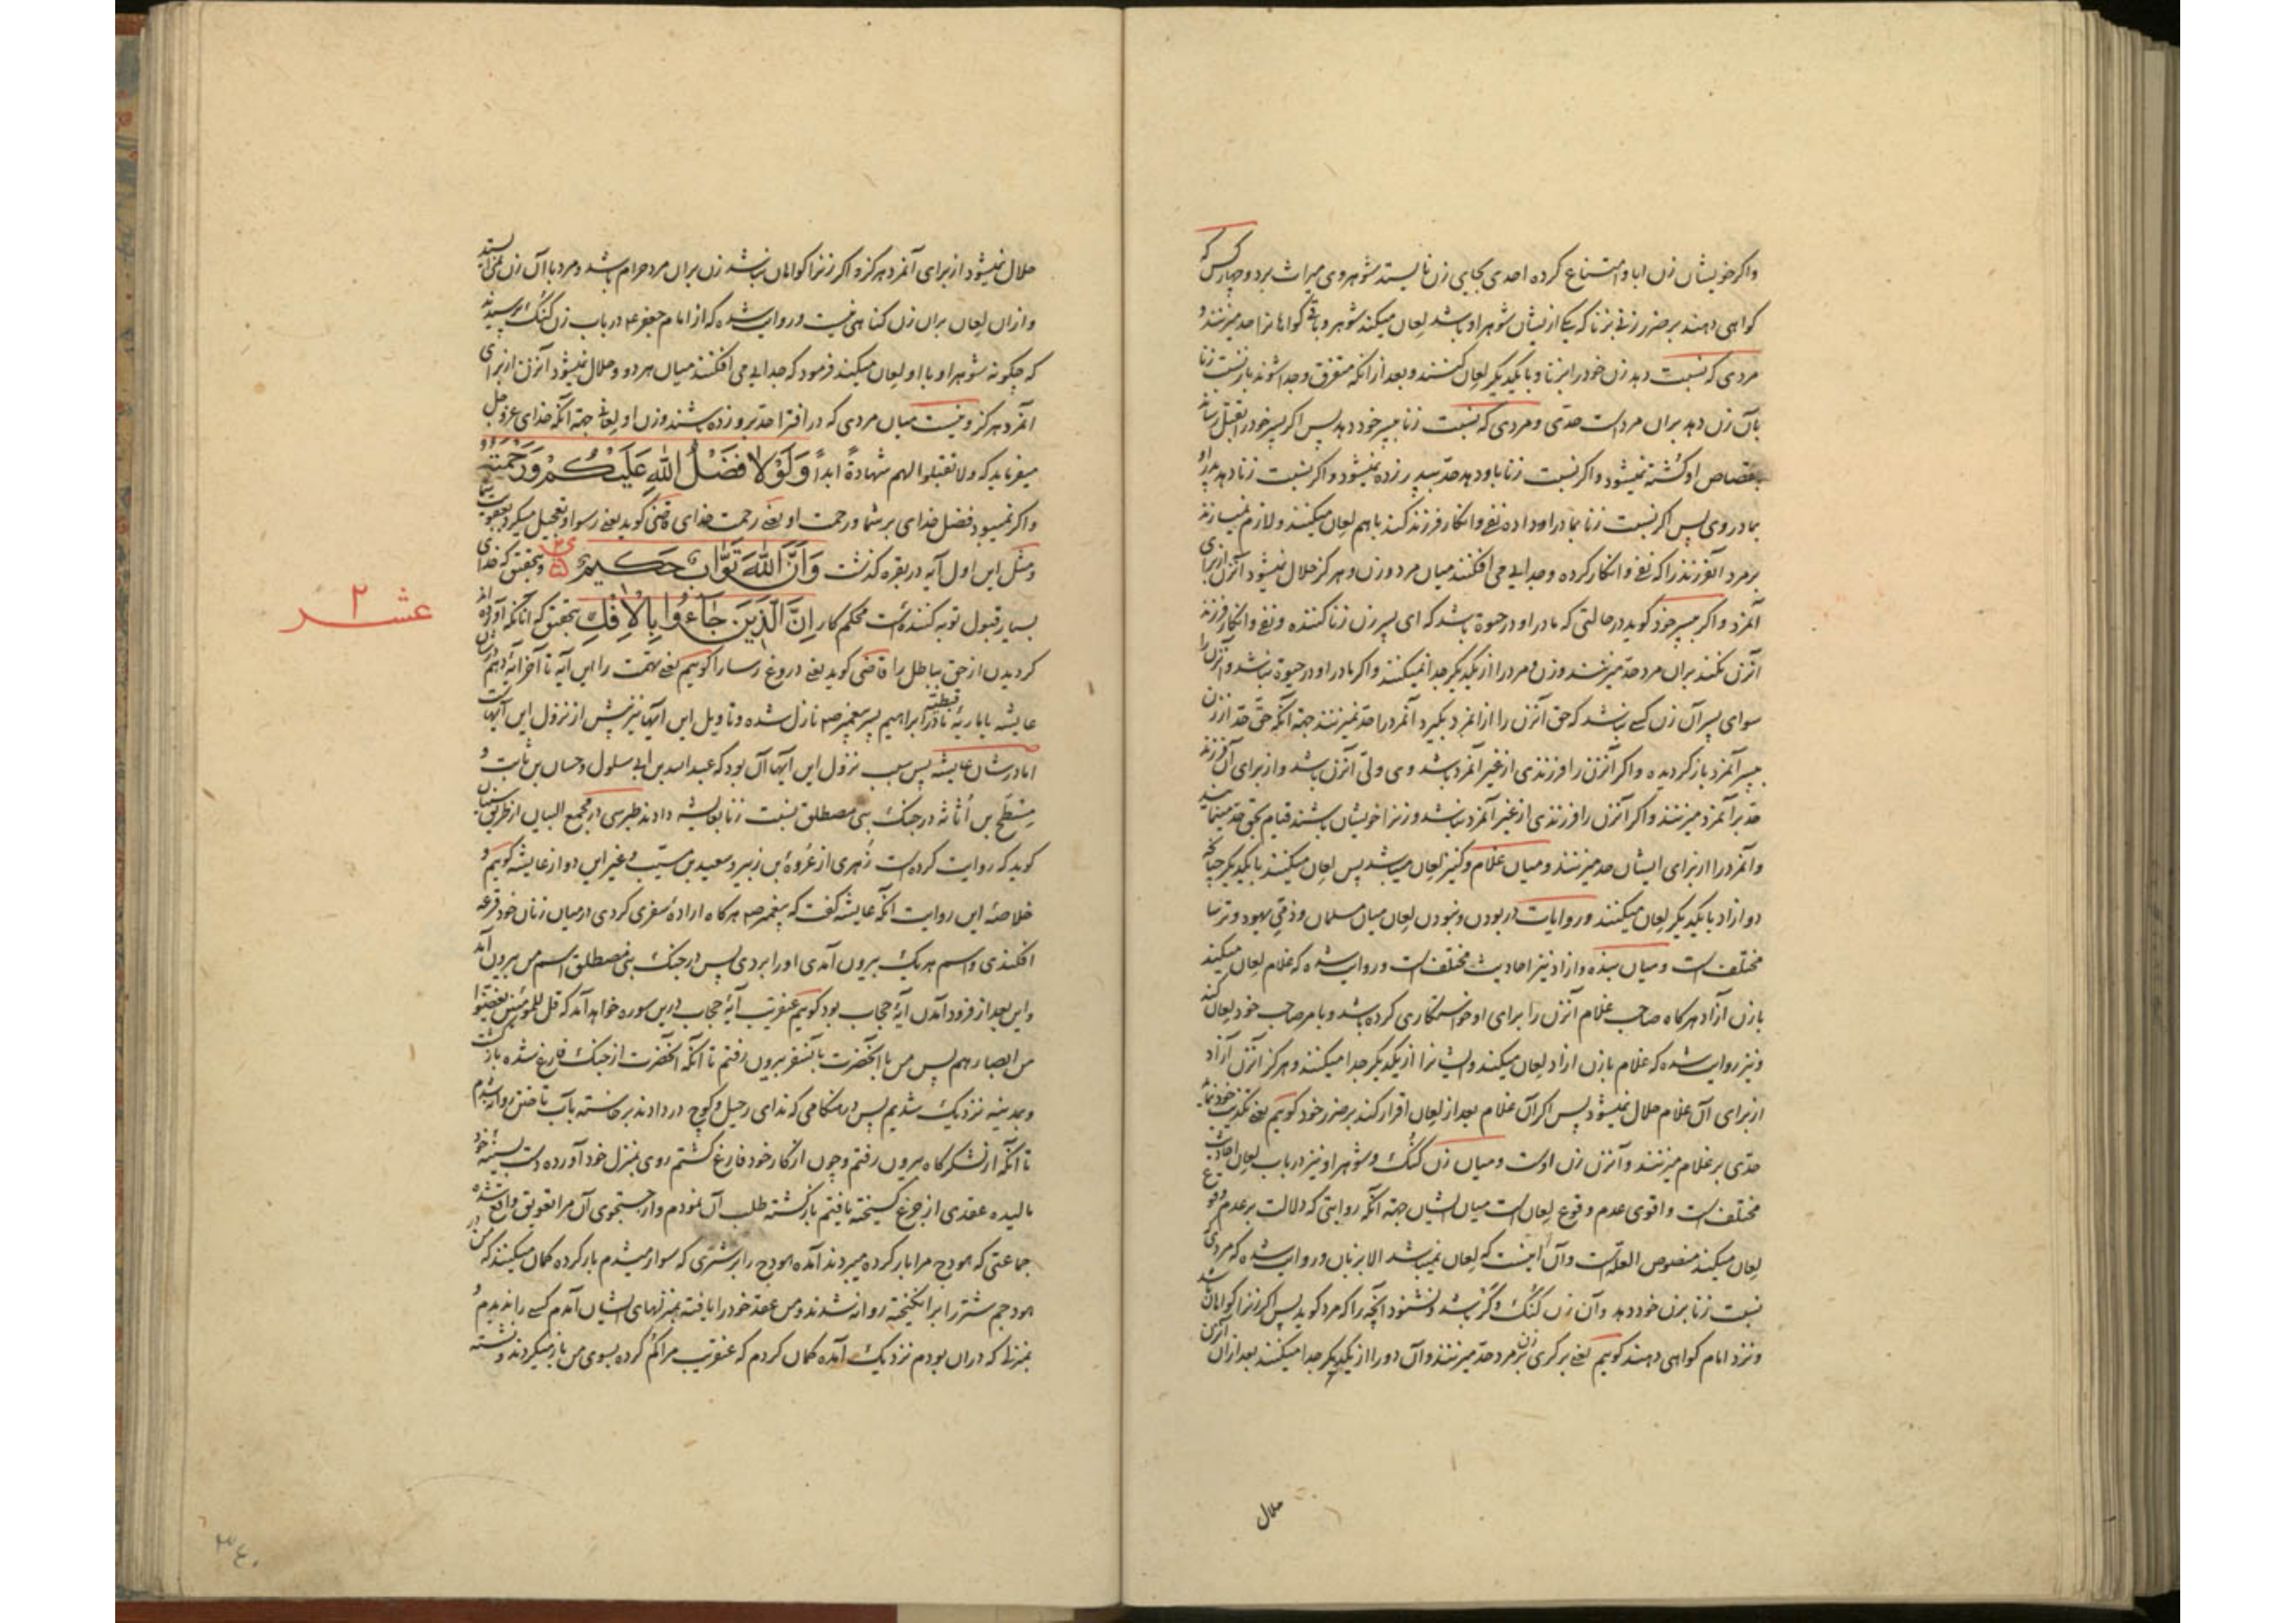 واکر خویشان زن ابا و امتناع کرده احدی بجایی زن نایستد شوهر وی میراث برد و چهار کس که
کواهی دهند بر ضرر زنی بزنا که یکی از ایشان شوهر او باشد لعان میکند شوهر و باقی کواهانرا حد میزنند و
مردی که نسبت دهد زن خود را بزنا و با یکدیکر لعان کنند و بعد از آنکه متفرق و جدا شوند باز نسبت زنا
بآن زن دهد بران مرد است حدّی و مردی که نسبت زنا بپسر خود دهد پس اکر پسر خود را بقتل رساند
بقصاص او کشته نمیشود و اکر نسبت زنا باو دهد حدّ بپدر زده نمیشود و اکر نسبت زنا دهد پدر او
بمادر وی پس اکر نسبت زنا بمادر او داده نفی و انکار فرزند کند باهم لعان میکنند و لازم نمیسازند
بر مرد آنفرزند را که نفی و انکار کرده و جدایی می افکنند میان مرد و زن و هرکز حلال نمیشود آنزن از برای
آنمرد و اکر بپسر خود کوید در حالتی که مادر او در حیوة باشد که ای پسر زن زنا کننده و نفی و انکار فرزند
آنزن نکند بران مرد حدّ میزنند و زن و مرد را از یکدیکر جدا نمیکنند و اکر مادر او در حیوة نباشد و آنزن را
سوای پسر آن زن کسی نباشد که حق آنزن را از آنمرد بکیرد آنمرد را حدّ نمیزنند جهة آنکه حقّ حدّ از زن
بپسر آنمرد بازکردیده و اکر آنزن را فرزندی از غیر آنمرد باشد وی ولی آنزن باشد و از برای آن فرزند
حدّ بر آنمرد میزنند و اکر آنزن را فرزندی از غیر آنمرد نباشد و زنرا خویشان باشند قیام بحق حدّ مینمایند
و آنمرد را از برای ایشان حد میزنند و میان غلام و کنیز لعان میباشد پس لعان میکنند با یکدیکر چنانچه
دو ازاد با یکدیکر لعان میکنند و روایات در بودن و نبودن لعان میان مسلمان و ذمّی یهود و ترسا
مختلف است و میان بنده و ازاد نیز احادیث مختلف است و روایت شده که غلام لعان میکند
با زن آزاد هرکاه صاحب غلام آنزن را برای او خواستکاری کرده باشد و بامر صاحب خود لعان کند
و نیز روایت شده که غلام با زن ازاد لعان میکند و ایشانرا از یکدیکر جدا میکنند و هرکز آنزن آزاد
از برای آن غلام حلال نمیشود پس اکر آن غلام بعد از لعان اقرار کند بر ضرر خود کوییم یعنی تکذیب خود نماید
حدّی بر غلام میزنند و آنزن زن اوست و میان زن کنک و شوهر او نیز در باب لعان احادیث
مختلف است و اقوی عدم وقوع لعان است میان ایشان جهة آنکه روایتی که دلالت بر عدم وقوع
لعان میکند منصوص العلة است و آن اینست که لعان نمیباشد الا بزبان و روایت شده که مردی
نسبت زنا بزن خود دهد و آن زن کنک و کر باشد و نشنود آنچه را که مرد کوید پس اکر زنرا کواهان باشد
و نزد امام کواهی دهند کوییم یعنی بر کری زن بر مرد حدّ میزنند و آن دو را از یکدیکر جدا میکنند بعد ازان آنزن
حلال
حلال نمیشود از برای آنمرد هرکز و اکر زنرا کواهان نباشد زن بران مرد حرام باشد و مرد با آن زن نمی ایستد
و ازان لعان بران زن کناهی نیست و روایت شده که از امام جعفر ع در باب زن کنک پرسیدند
که چکونه شوهر او با او لعان میکند فرمود که جدایی می افکنند میان هر دو و حلال نمیشود آنزن از برای
آنمرد هرکز و نیست میان مردی که در افترا حدّ برو زده باشند و زن او لعانی جهة آنکه خدای عزّ و جل
میفرماید که ولا تقبلوا لهم شهادةً ابداً وَلَوْلَا فَضْلُ اللّٰهِ عَلَيْكُمْ وَرَحْمَتُهُ
و اکر نمیبود فضل خدای بر شما و رحمت او یعنی رحمت خدای قاضی کوید یعنی رسوا و تعجیل میکرد بعقوبت شما
و مثل این اول آیه در بقره کذشت وَاَنَّ اللّٰهَ تَوَّابٌ حَكِيمٌ و بتحقیق که خدای
بسیار قبول توبه کننده است محکم کار اِنَّ الَّذِينَ جَآءُوا بِالْاِفْكِ بتحقیق که آنانکه آورده اند
عشر ۲
کردیدن از حق بباطل را قاضی کوید یعنی دروغ رسا را کوییم یعنی تهمت را این آیه تا آخر آیه دهم در شان
عایشه یا ماریهٔ قبطیّه مادر ابراهیم پسر پیغمبر ص نازل شده و تاویل این آیها نیز پیش از نزول این آیهاست
اما در شان عایشه پس سبب نزول این آیها آن بود که عبد الله بن ابی سلول و حسان بن ثابت و
مِسْطَح بن اُثاثه در جنک بنی مصطلق نسبت زنا بعایشه دادند طبرسی در مجمع البیان از طریق سنیان
کوید که روایت کرده است زُهری از عُروةٔ بن زبیر و سعید بن مسیّب و غیر این دو از عایشه کوییم و
خلاصهٔ این روایت آنکه عایشه کفت که پیغمبر ص هرکاه ارادهٔ سفری کردی در میان زنان خود قرعه
افکندی و اسم هر یک بیرون آمدی او را بردی پس در جنک بنی مصطلق اسم من بیرون آمد
و این بعد از فرود آمدن آیهٔ حجاب بود کوییم عنقریب آیهٔ حجاب درین سوره خواهد آمد که قل للمؤمنین یغضوا
من ابصارهم پس من با آنحضرت بآنسفر بیرون رفتم تا آنکه آنحضرت از جنک فارغ شده بازکشت
و بمدینه نزدیک شدیم پس در هنکامی که ندای رحیل و کوچ در دادند برخاسته بآب تاختن روانه شدم
تا آنکه از لشکرکاه بیرون رفتم و چون از کار خود فارغ کشتم روی بمنزل خود آورده دست بسینهٔ خود
مالیده عقدی از جزع کسیخته یافتم بازکشته طلب آن نمودم و از جستجوی آن مرا تعویق واقع شده
جماعتی که هودج مرا بار کرده میبردند آمده هودج را بر شتری که سوار میشدم بار کرده کمان میکنند که من در
هودجم شتر را برانکیخته روانه شدند و من عقد خود را یافته بمنزلهای ایشان آمدم کسی را ندیدم و
بمنزلی که دران بودم نزدیک آمده کمان کردم که عنقریب مرا کم کرده بسوی من باز میکردند و نشسته
۳۴۰